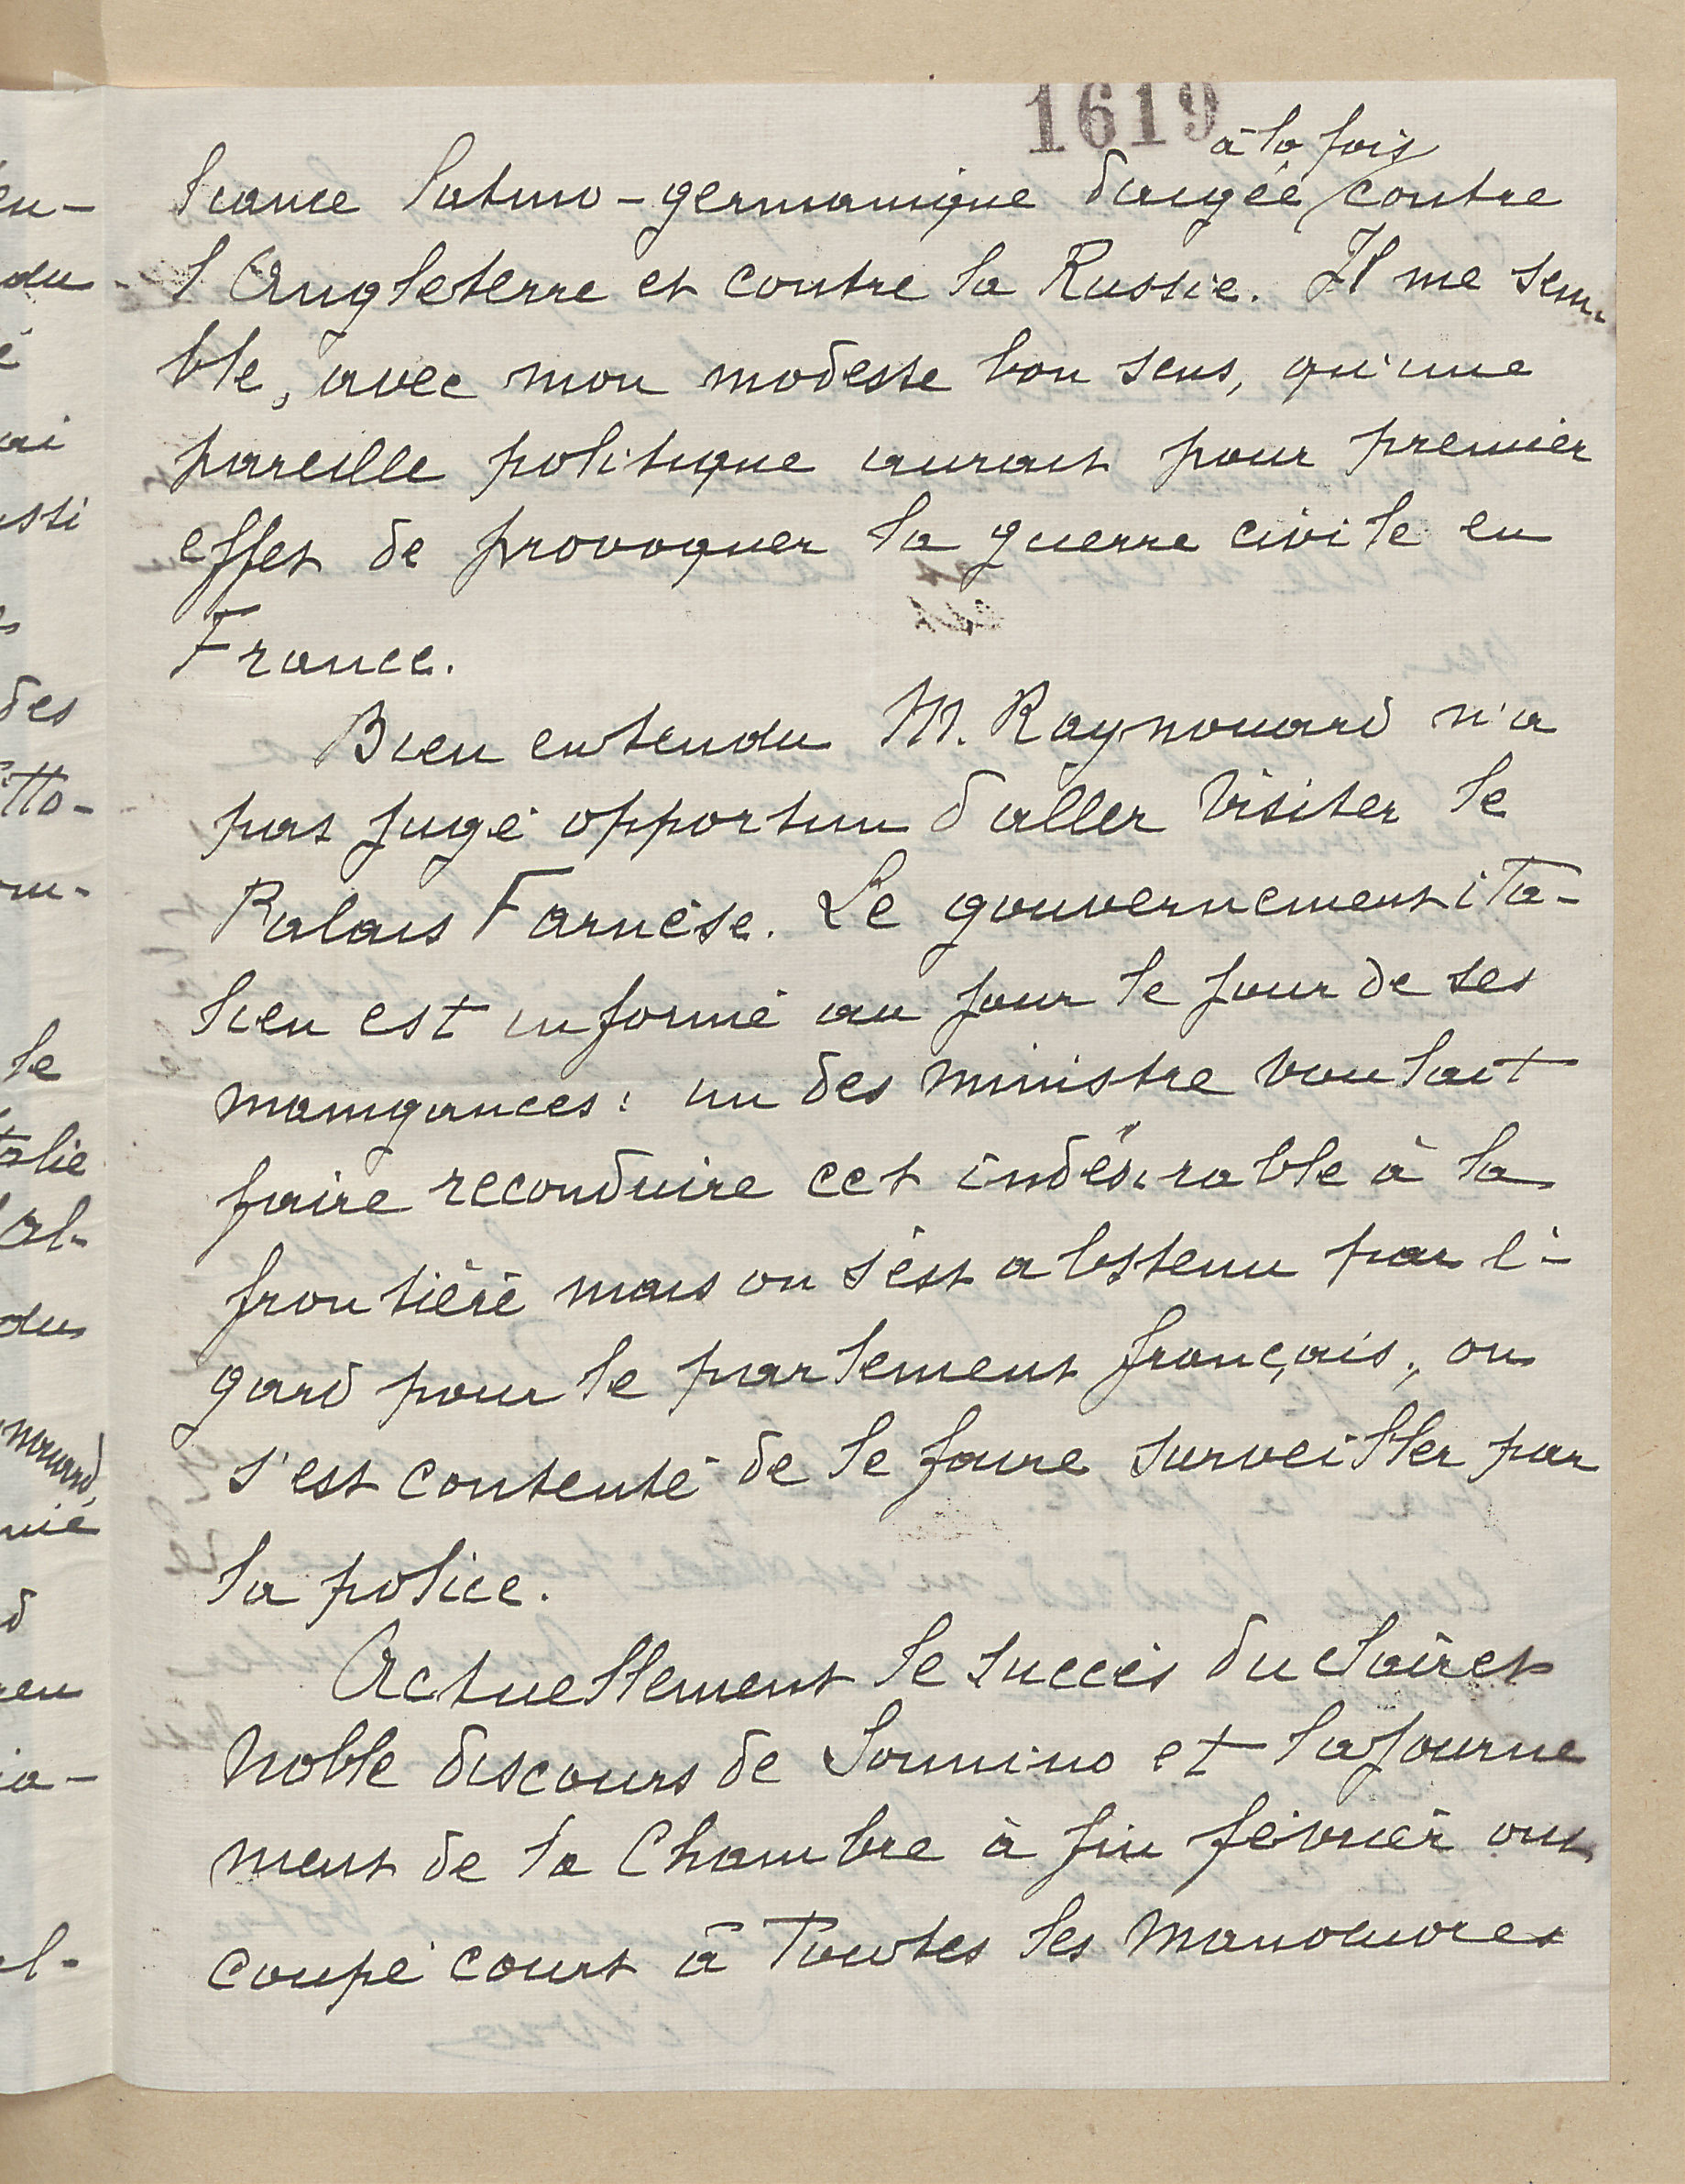 1619
à la fois
liance latino-germanique dirigée contre
l'Angleterre et contre la Russie. Il me sem-
ble, avec mon modeste bon sens, qu'une
pareille politique aurait pour premier
effet de provoquer la guerre civile en
France.
Bien entendu M. Raynouard n'a
pas jugé opportun d'aller visiter le
Palais Farnèse. Le gouvernement ita-
lien est informé au jour le jour de ses
manigances : un des ministre voulait
faire reconduire cet indésirable à la
frontière mais on s'est abstenu par é-
gard pour le parlement français, on
s'est contenté de le faire surveiller par
la police.
Actuellement le succès du clair et
noble discours de Sonnino et l'ajourne
ment de la Chambre à fin février ont
coupé court à toutes les manoeuvres